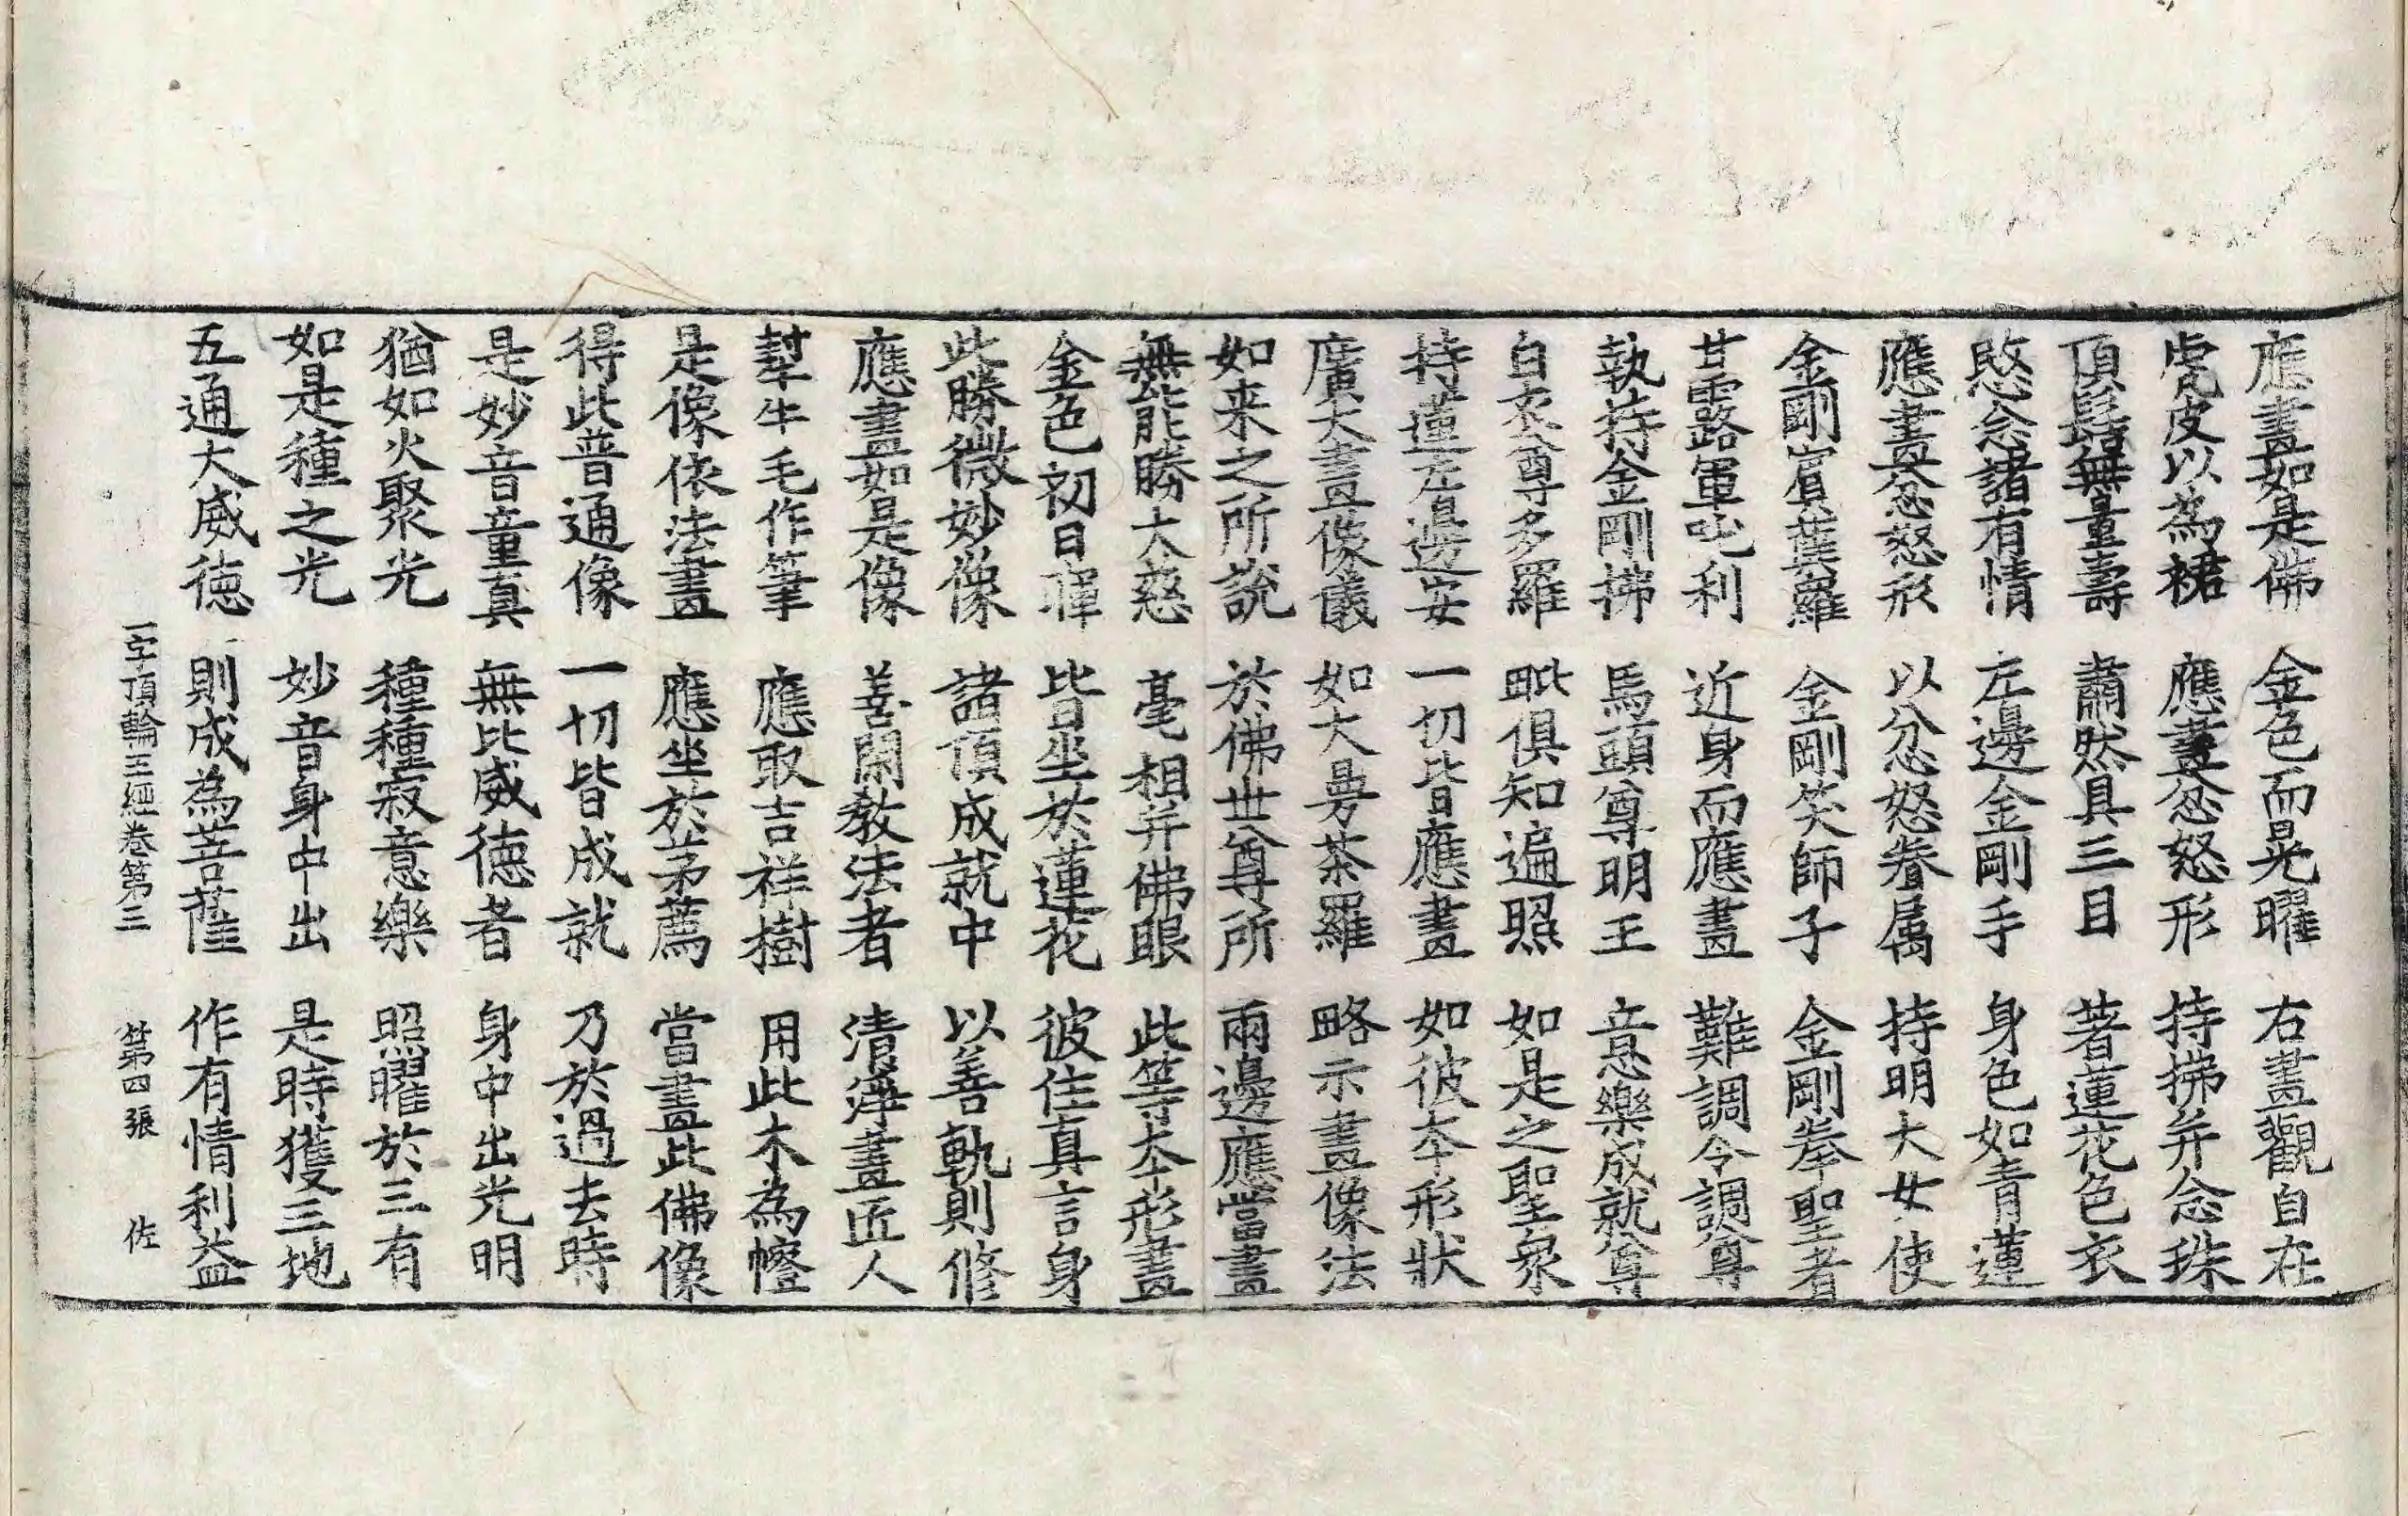 應畫如是佛 金色而晃曜 右畫觀自在
虎皮以為裙 應畫忿怒形 持拂并念珠
頂髻無量壽 肅然具三目 著蓮花色衣
愍念諸有情 左邊金剛手 身色如青蓮
應畫忿怒形 以忿怒眷属 持明大女使
金剛賔葉囉 金剛笑師子 金剛拳聖者
甘露軍吒利 近身而應畫 難調令調尊
執持金剛拂 馬頭尊明王 意樂成就尊
白衣尊多羅 毗俱知遍照 如是之聖衆
持蓮左邊安 一切皆應畫 如彼夲形狀
廣大畫像儀 如大曼茶羅 略示畫像法
如来之所說 於佛世尊所 兩邊應當畫
無能勝大慈 毫相并佛眼 此等夲形畫
金色初日暉 皆坐於蓮花 彼住真言身
此勝微妙像 諸頂成就中 以善軌則修
應畫如是像 善閑教法者 清淨畫匠人
犎牛毛作筆 應取吉祥樹 用此木為幰
是像依法畫 應坐於茅薦 當畫此佛像
得此普通像 一切皆成就 乃於過去時
是妙音童真 無比威德者 身中出光明
猶如火聚光 種種寂意樂 照曜於三有
如是種之光 妙音身中出 是時獲三地
五通大威徳 則成為菩薩 作有情利益
一字頂輪王經卷第三 第四張 佐